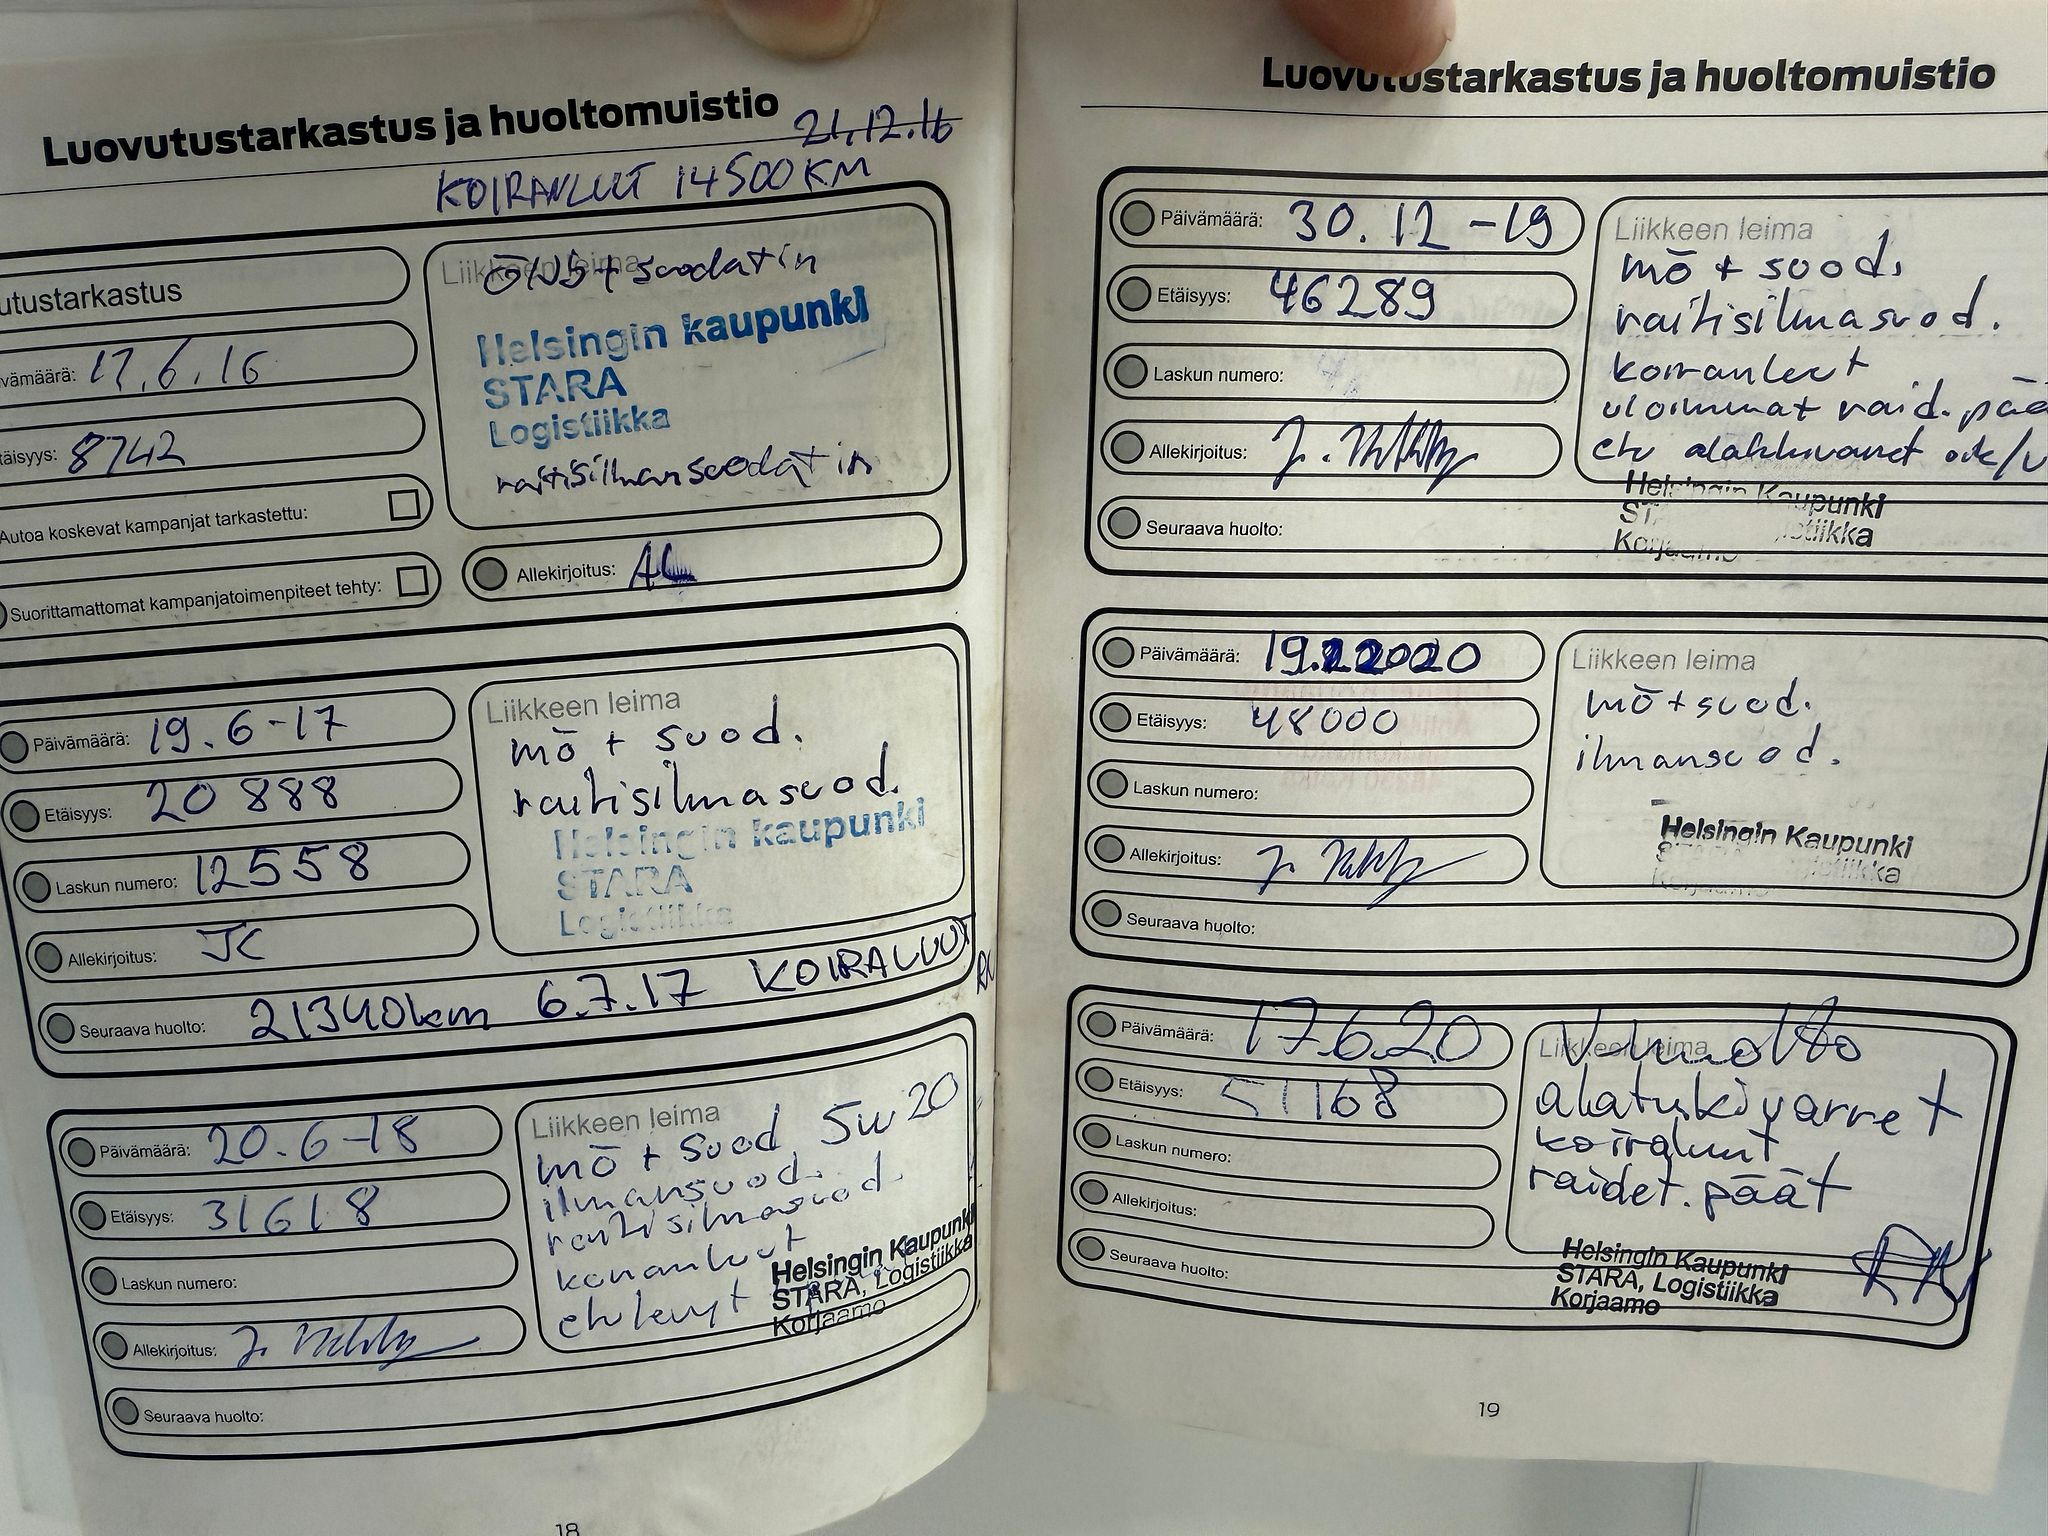 Luovutustarkastus ja huoltomuistio
21.12.16
KOIRANLUUT 14500 KM
utustarkastus
vämäärä: 17.6.16
täisyys: 8742
Autoa koskevat kampanjat tarkastettu:
Suorittamattomat kampanjatoimenpiteet tehty:
Liikkeen leima
+ suodatin
Helsingin kaupunki
STARA
Logistiikka
raitisilmansuodatin
Allekirjoitus:
Päivämäärä: 19.6-17
Etäisyys: 20 888
Laskun numero: 12558
Allekirjoitus: JC
Seuraava huolto: 21340km 6.7.17 KOIRALUUT RK
Liikkeen leima
mö + suod.
raitisilmasuod.
Helsingin kaupunki
STARA
Logistiikka
Päivämäärä: 20.6-18
Etäisyys: 31618
Laskun numero:
Allekirjoitus:
Seuraava huolto:
Liikkeen leima
mö + suod 5w20
ilmansuod.
raitisilmasuod.
koiranluut
etulevyt
Helsingin Kaupunki
STARA, Logistiikka
Korjaamo
18
Luovutustarkastus ja huoltomuistio
Päivämäärä: 30.12-19
Etäisyys: 46289
Laskun numero:
Allekirjoitus:
Seuraava huolto:
Liikkeen leima
mö + suod.
raitisilmasuod.
koiranluut
uloimmat raid. pää
etu alatukivarret oik/v
Helsingin Kaupunki
STA stiikka
Korjaamo
Päivämäärä: 19.2.2020
Etäisyys: 48000
Laskun numero:
Allekirjoitus:
Seuraava huolto:
Liikkeen leima
mö + suod.
ilmansuod.
Helsingin Kaupunki
STARA, Logistiikka
Korjaamo
Päivämäärä: 17.6.20
Etäisyys: 51168
Laskun numero:
Allekirjoitus:
Seuraava huolto:
Liikkeen leima
V-huolto
alatukivarret
koiraluut
raidet.päät
Helsingin Kaupunki
STARA, Logistiikka
Korjaamo
RK
19